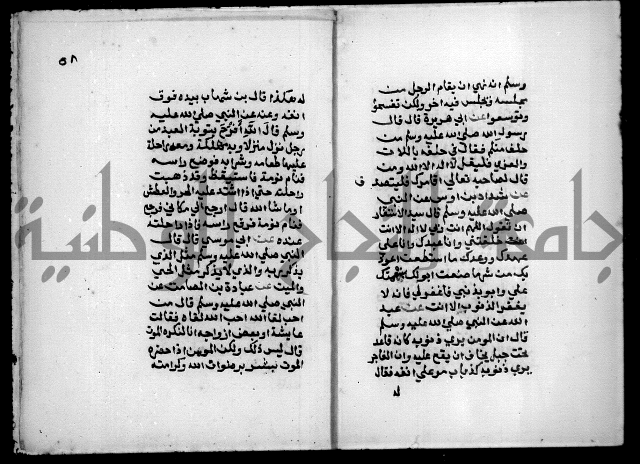 وسلم انه نهي ان يقام الرجل من
مجلسه ويجلس فيه اخر ولكن تفسحوا
وتوسعوا عن ابي هريرة قال قال
رسول الله صلي الله عليه وسلم من
حلف منكم فقال في حلفه باللات
والعزي فليقل لا اله الا الله ومن
قال لصاحبه تعالي اقامرك فليتصدق
عن شداد بن اوس عن النبي
صلي الله عليه وسلم قال سيد الاستغفار
ان تقول اللهم انت ربي لا اله الا انت
خلقتني وانا عبدك وانا علي
عهدك ووعدك ما استطعت اعوذ
بك من شر ما صنعت ابو لك بنعمتك
علي وابو بذنبي فاغفر لي فانه لا
يغفر الذنوب الا انت عن عبد
الله عن النبي صلي الله عليه وسلم
قال ان المومن يري ذنوبه كانه قاعد
تحت جبل يخاف ان يقع عليه وان الفاجر
يري ذنوبه كذباب مر علي انفه فقال
له
٥٨
له هكذا قال بن شهاب بيده فوق
انفه وعنه عن النبي صلي الله عليه
وسلم قال الله افرح بتوبة العبد من
رجل نزل منزلا وبه مهلكة ومعه راحلة
عليها طعامه وشرابه فوضع راسه
فنام نومة فاستيقظ وقد ذهبت
راحلته حتي اذا اشتد عليه الحر والعطش
او ما شا الله قال ارجع الي مكاني فرجع
فنام نومة فرفع راسه فاذا راحلته
عنده عن ابي موسي قال قال
النبي صلي الله عليه وسلم مثل الذي
يذكر ربه والذي لا يذكر مثل الحي
والميت عن عبادة بن الصامت عن
النبي صلي الله عليه وسلم قال من
احب لقا الله احب الله لقاه فقالت
عايشة او بعض ازواجه انا لنكره الموت
قال ليس ذلك ولكن المومن اذا حضره
الموت يبشر برضوان الله وكرامته